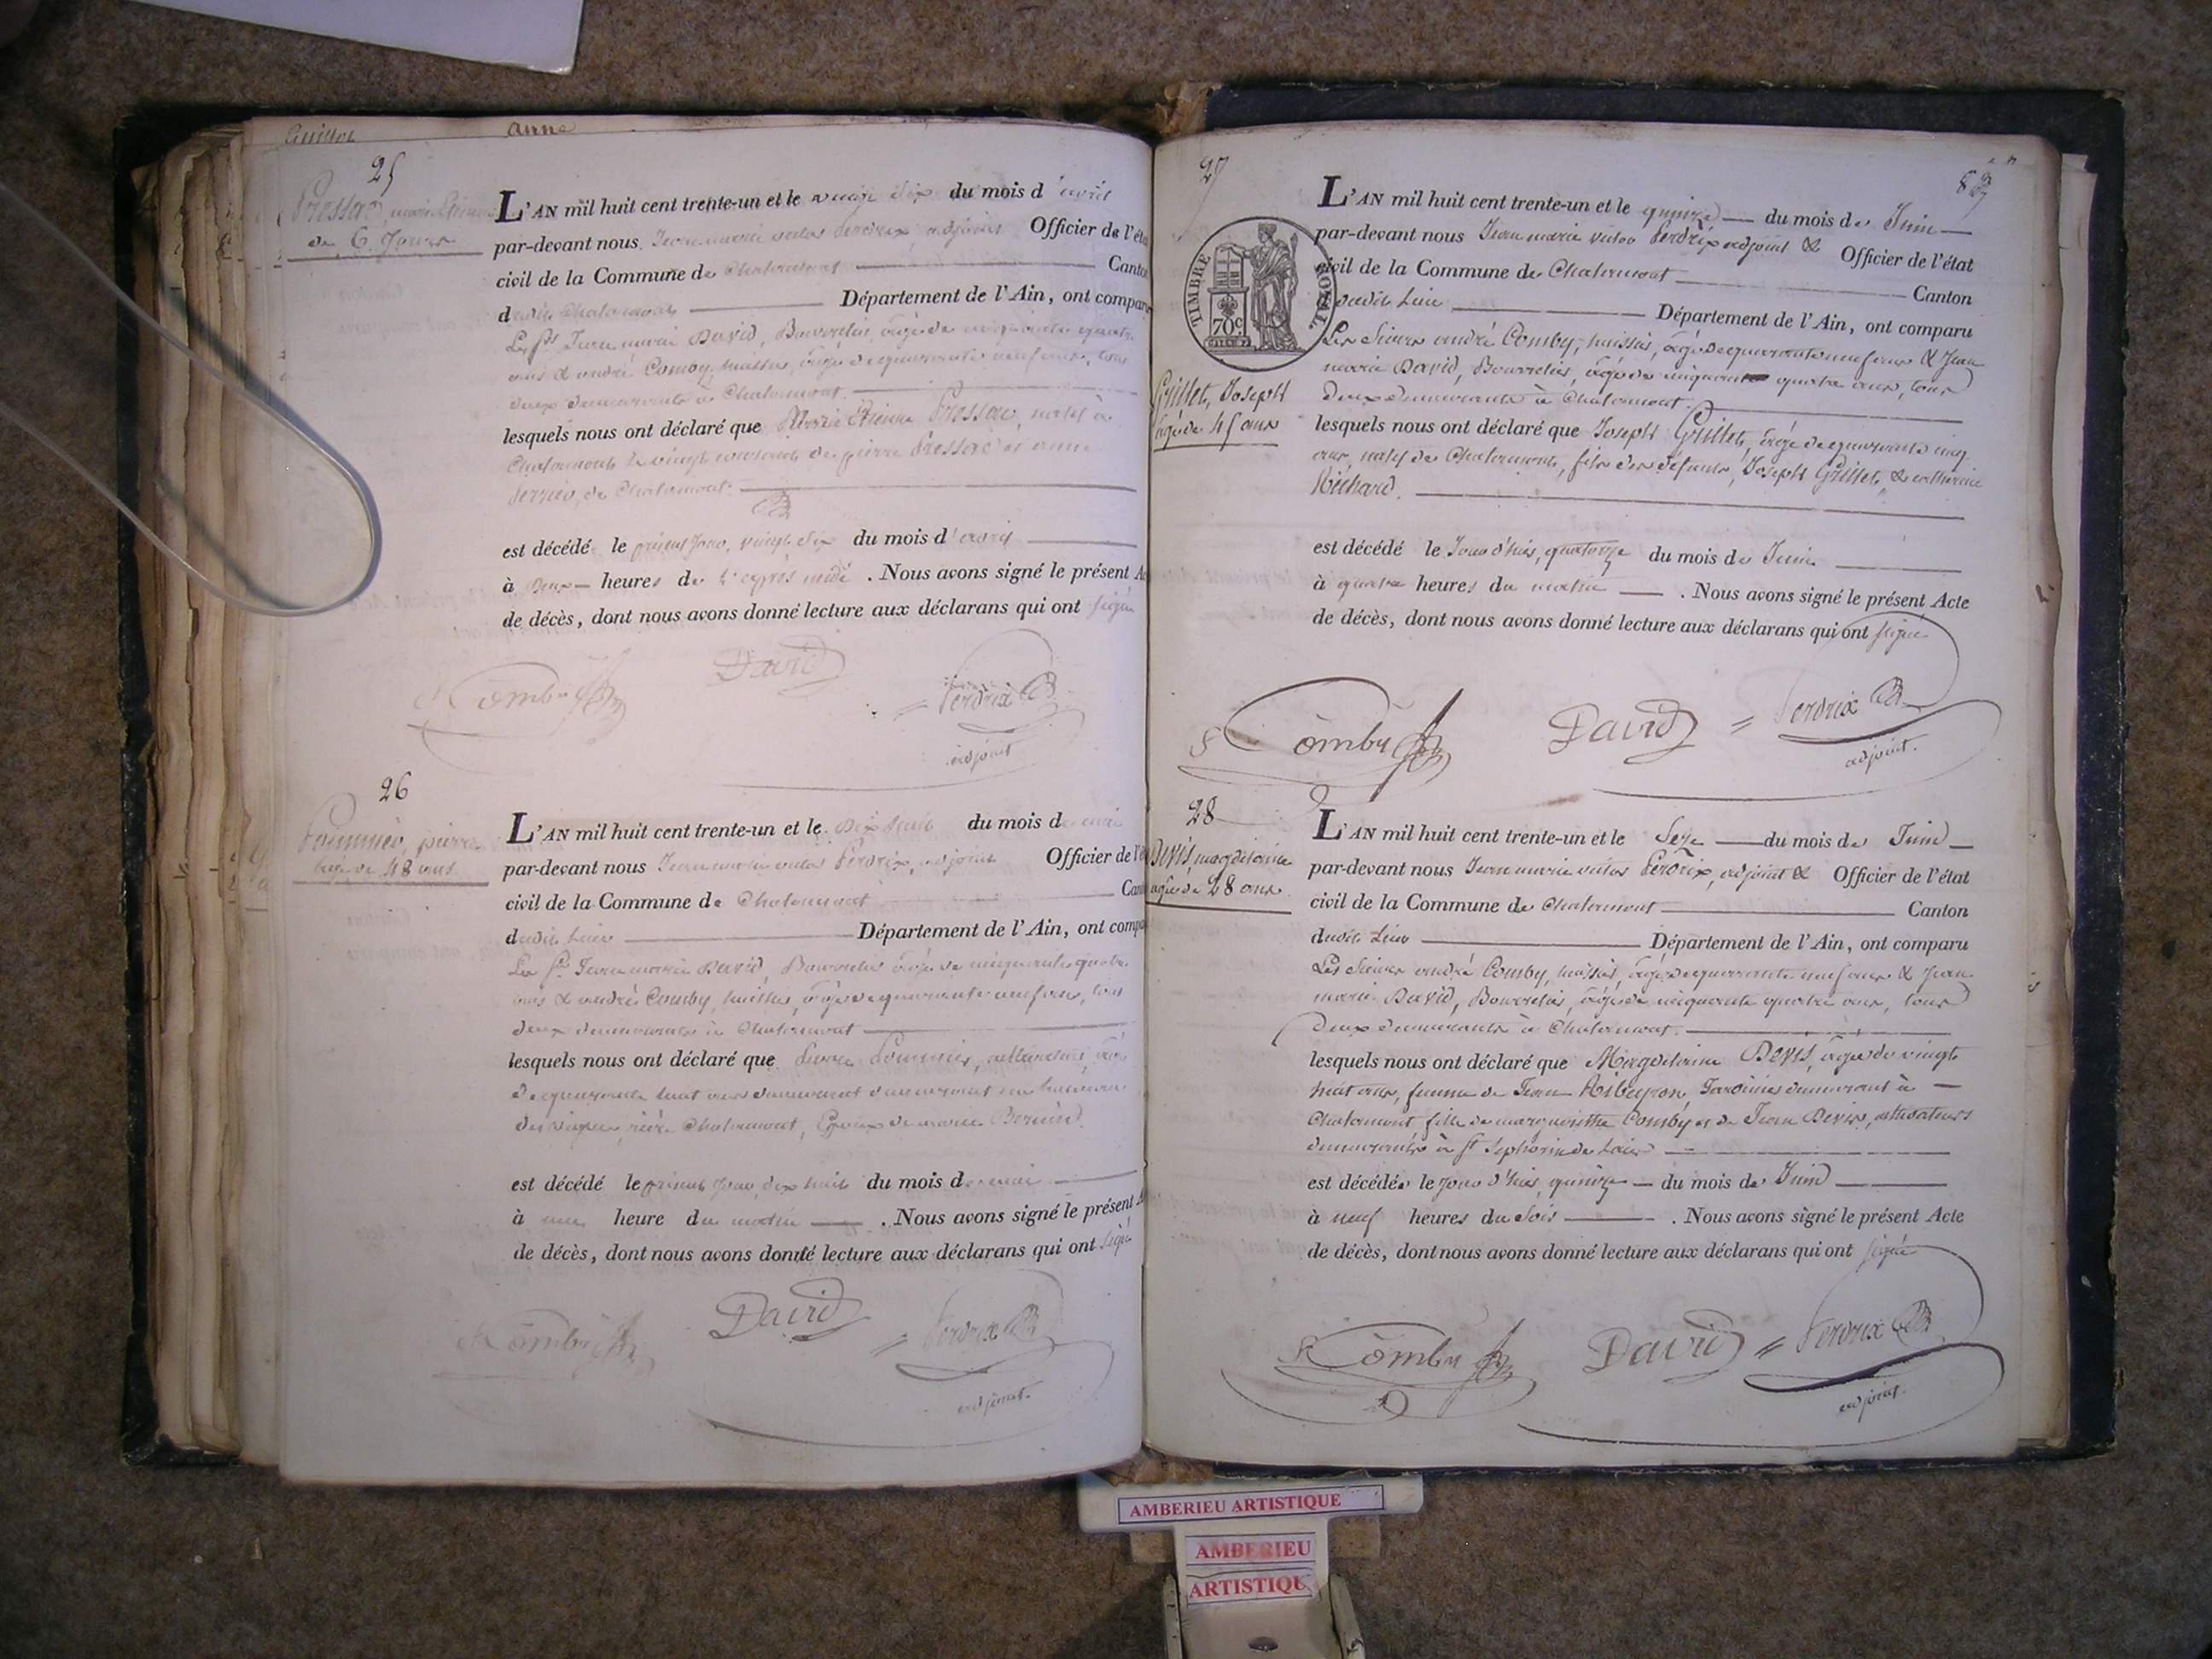 Guillot anne
25
Pressac, marie Etienne
de 6 Jours
L'AN mil huit cent trente-un et le vingt six du mois d'avril
par-devant nous Jean marie victor Perdrix, adjoint Officier de l'état
civil de la Commune de Chalamont Canton
dudit Chalamont Département de l'Ain, ont comparu
Les Srs Jean marie David, Bourrelier, âgé de cinquante quatre
ans & andré Comby, huissier, âgé de quarante neuf ans, tous
deux demeurants à Chalamont.
lesquels nous ont déclaré que Marie Etienne Pressac, natif à
Chalamont le vingt courant de pierre Pressac et anne
de Chalamont.
est décédé le présent jour, vingt six du mois d'avril
à deux heures de l'après midi. Nous avons signé le présent Acte
de décès, dont nous avons donné lecture aux déclarans qui ont signé
Comby David Perdrix
adjoint
26
Pommier, pierre
âgé de 48 ans
L'AN mil huit cent trente-un et le dix huit du mois de mai
par-devant nous Jean marie victor Perdrix, adjoint Officier de l'état
civil de la Commune de Chalamont Canton
dudit Lieu Département de l'Ain, ont comparu
Les Srs Jean marie David, Bourrelier âgé de cinquante quatre
ans & andré Comby, huissier, âgé de quarante neuf ans, tous
deux demeurants à Chalamont
lesquels nous ont déclaré que Pierre Pommier, cultivateur, âgé
de quarante huit ans demeurant au hameau
des vignes, rière Chalamont, Epoux de marie
est décédé le présent jour, dix huit du mois de mai
à une heure du matin. Nous avons signé le présent Acte
de décès, dont nous avons donné lecture aux déclarans qui ont signé
Comby David Perdrix
adjoint.
27
TIMBRE ROYAL
70c
Grillet, Joseph
âgé de 45 ans
L'AN mil huit cent trente-un et le quinze du mois de Juin
par-devant nous Jean marie victor Perdrix adjoint & Officier de l'état
civil de la Commune de Chalamont Canton
dudit Lieu Département de l'Ain, ont comparu
Les Sieurs andré Comby, huissier, âgé de quarante neuf ans & Jean
marie David, Bourrelier, âgé de cinquante quatre ans, tous
deux demeurants à Chalamont.
lesquels nous ont déclaré que Joseph Grillet, âgé de quarante cinq
ans, natif de Chalamont, fils des défunts, Joseph Grillet, & catherine
Richard.
est décédé le Jour d'hier, quatorze du mois de Juin
à quatre heures du matin. Nous avons signé le présent Acte
de décès, dont nous avons donné lecture aux déclarans qui ont signé
Comby David Perdrix
adjoint.
28
Devis, magdelaine
âgée de 28 ans
L'AN mil huit cent trente-un et le Seze du mois de Juin
par-devant nous Jean marie victor Perdrix, adjoint & Officier de l'état
civil de la Commune de Chalamont Canton
dudit Lieu Département de l'Ain, ont comparu
Les Sieurs andré Comby, huissier, âgé de quarante neuf ans & Jean
marie David, Bourrelier, âgé de cinquante quatre ans, tous
deux demeurants à Chalamont.
lesquels nous ont déclaré que Magdelaine Devis, âgée de vingt
huit ans, femme de Jean Ribeyron, Jardinier demeurant à
Chalamont, fille de marguerithe Comby et de Jean Devis, cultivateurs
demeurants à St Sephorin de Laies
est décédée le Jour d'hier, quinze du mois de Juin
à neuf heures du Soir. Nous avons signé le présent Acte
de décès, dont nous avons donné lecture aux déclarans qui ont signé
Comby David Perdrix
adjoint.
AMBERIEU ARTISTIQUE
AMBERIEU
ARTISTIQU